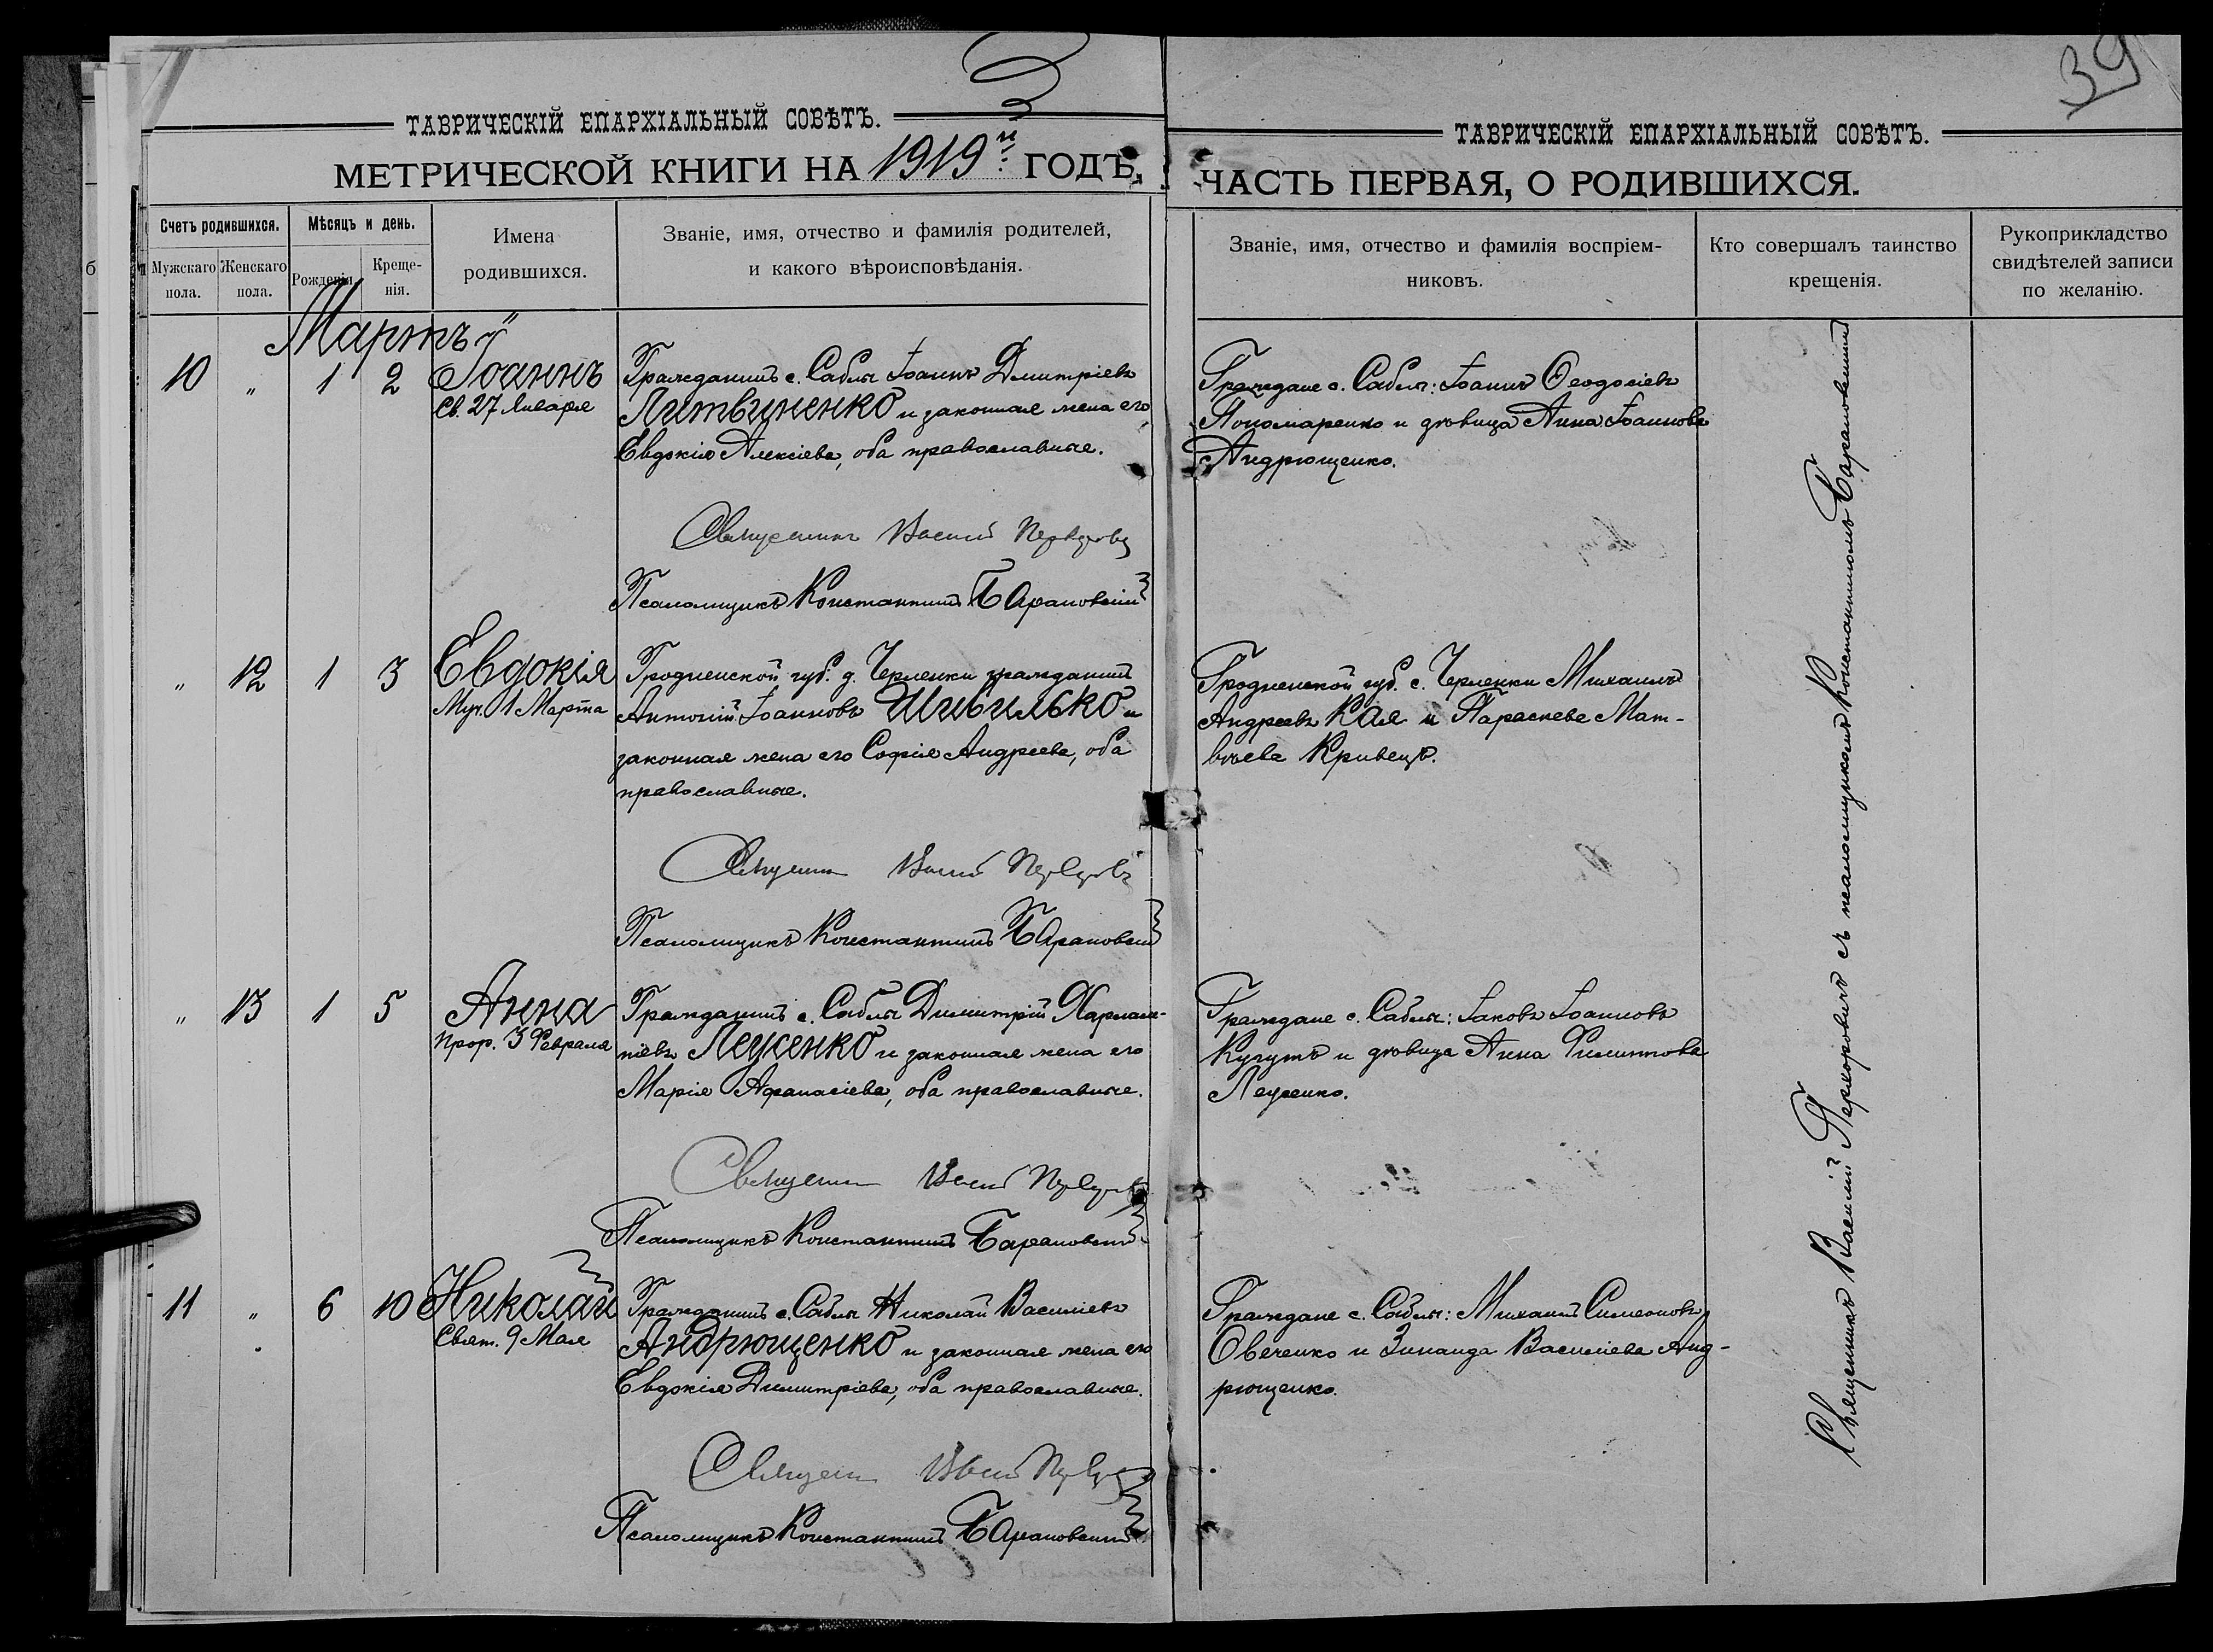 39
ТАВРИЧЕСКІЙ ЕПАРХІАЛЬНЫЙ СОВѢТЪ.
МЕТРИЧЕСКОЙ КНИГИ НА 1919й ГОДЪ,
ТАВРИЧЕСКІЙ ЕПАРХІАЛЬНЫЙ СОВѢТЪ.
ЧАСТЬ ПЕРВАЯ, О РОДИВШИХСЯ.
Счетъ родившихся.
Мужскаго пола.
Женскаго пола.
Мѣсяцъ и день.
Рожденія.
Креще-
нія.
Имена
родившихся.
Званіе, имя, отчество и фамилія родителей,
и какого вѣроисповѣданія.
Званіе, имя, отчество и фамилія воспріем-
никовъ.
Кто совершалъ таинство
крещенія.
Рукоприкладство
свидѣтелей записи
по желанію.
Мартъ
10 " 1 2 Іоаннъ
Св. 27 Января
Гражданинъ с. Саблы Іоаннъ Дмитріевъ
Литвиненко и законная жена его
Евдокія Алексіева, оба православные.
Священникъ Василій
Псаломщикъ Константинъ Барановскій
Граждане с. Саблы: Іоаннъ Ѳеодосіевъ
Пономаренко и дѣвица Анна Іоаннова
Андрющенко.
" 12 1 3 Евдокія
Муч. 1 Марта
Гродненской губ. д. Черленки гражданинъ
Антоній Іоанновъ Шивилько и
законная жена его Софія Андреева, оба
православные.
Священникъ Василій
Псаломщикъ Константинъ Барановскій
Гродненской губ. с. Черленки Михаилъ
Андреевъ Кая и Параскева Мат-
вѣева Кривецъ.
" 13 1 5 Анна
Прор. 3 Февраля
Гражданинъ с. Саблы Димитрій Харлам-
піевъ Леусенко и законная жена его
Марія Афанасіева, оба православные.
Священникъ Василій
Псаломщикъ Константинъ Барановскій
Граждане с. Саблы: Іаковъ Іоанновъ
Кугутъ и дѣвица Анна Филиппова
Леусенко.
11 " 6 10 Николай
Свят. 9 Мая
Гражданинъ с. Саблы Николай Василіевъ
Андрющенко и законная жена его
Евдокія Димитріева, оба православные.
Священникъ Василій
Псаломщикъ Константинъ Барановскій
Граждане с. Саблы: Михаилъ Симеоновъ
Овеченко и Зинаида Василіева Анд-
рющенко.
Священникъ Василій съ псаломщикомъ Константиномъ Барановскимъ